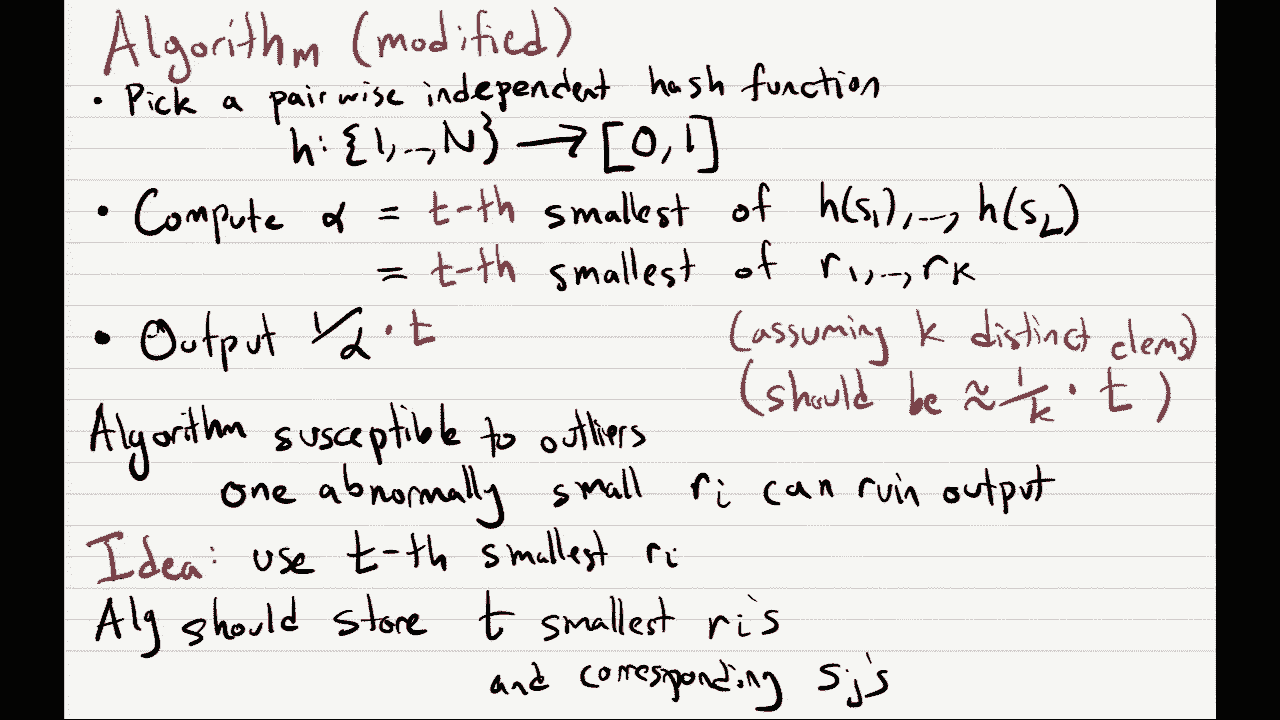 Algorithm (modified)
• Pick a pairwise independent hash function
h: {1,..,N} → [0,1]
• Compute α = t-th smallest of h(s₁),..., h(s_L)
= t-th smallest of r₁,..., r_k
• Output 1/α · t
(assuming k distinct elems)
(should be ≈ 1/k · t)
Algorithm susceptible to outliers
one abnormally small rᵢ can ruin output
Idea: use t-th smallest rᵢ
Alg should store t smallest rᵢ's
and corresponding sⱼ's